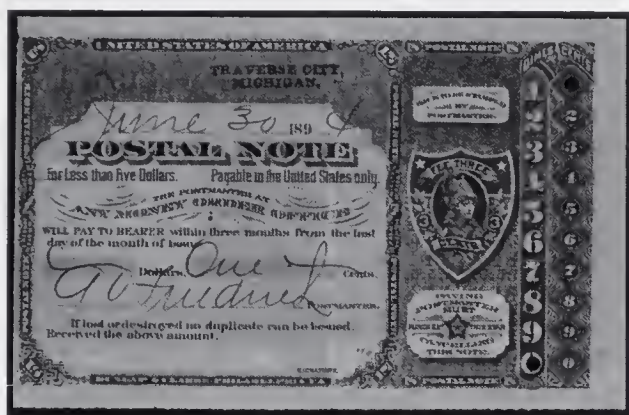 UNITED STATES OF AMERICA
TRAVERSE CITY,
MICHIGAN,
June 30 1894
POSTAL NOTE
For Less than Five Dollars. Payable in the United States only.
THE POSTMASTER AT
ANY MONEY ORDER OFFICE
WILL PAY TO BEARER within three months from the last
day of the month of issue
Dollars, One Cents.
POSTMASTER.
If lost or destroyed no duplicate can be issued.
Received the above amount.
DUNLAP & CLARKE PHILADELPHIA PA
POSTAL NOTE
POSTMASTER.
FEE THREE
3 3
CENTS
PAYING
POSTMASTER
MUST
THIS NOTE.
POSTAL NOTE
DIMES CENTS
1
2 2
3 3
4 4
5 5
6 6
7 7
8 8
9 9
0 0